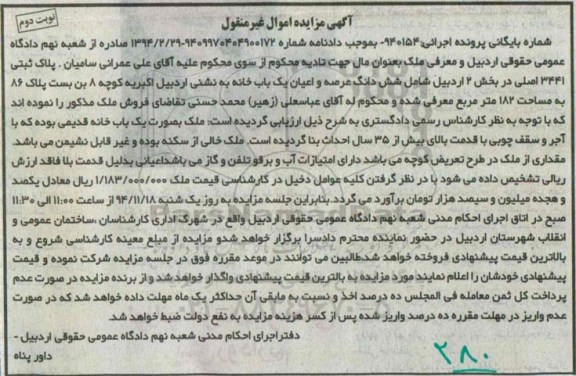 آگهی مزایده اموال غیرمنقول
نوبت دوم
شماره بایگانی پرونده اجرائی:۹۴۰۱۵۴- بموجب دادنامه شماره ۹۴۰۹۹۷۰۴۰۴۹۰۰۱۷۲-۱۳۹۴/۲/۲۹ صادره از شعبه نهم دادگاه
عمومی حقوقی اردبیل و معرفی ملک بعنوان مال جهت تادیه محکوم از سوی محکوم علیه آقای علی عمرانی سامیان . پلاک ثبتی
۳۴۴۱ اصلی در بخش ۲ اردبیل شامل شش دانگ عرصه و اعیان یک باب خانه به نشنی اردبیل اکبریه کوچه ۸ بن بست پلاک ۸۶
به مساحت ۱۸۲ متر مربع معرفی شده و محکوم له آقای عباسعلی (زهیر) محمد حسنی تقاضای فروش ملک مذکور را نموده اند
که با توجه به نظر کارشناس رسمی دادگستری به شرح ذیل ارزیابی گردیده است: ملک بصورت یک باب خانه قدیمی بوده که با
آجر و سقف چوبی با قدمت بالای بیش از ۳۵ سال احداث بنا گردیده است. ملک خالی از سکنه بوده و غیر قابل نشیمن می باشد.
مقداری از ملک در طرح تعریض کوچه می باشد دارای امتیازات آب و برقو تلفن و گاز می باشداعیانی بدلیل قدمت بلا فاقد ارزش
ریالی تشخیص داده می شود با در نظر گرفتن کلیه عوامل دخیل در کارشناسی قیمت ملک ۱/۱۸۳/۰۰۰/۰۰۰ ریال معادل یکصد
و هجده میلیون و سیصد هزار تومان برآورد می گردد.بنابراین جلسه مزایده به روز یک شنبه ۹۴/۱۱/۱۸ از ساعت ۱۱:۰۰ الی ۱۱:۳۰
صبح در اتاق اجرای احکام مدنی شعبه نهم دادگاه عمومی حقوقی اردبیل واقع در شهرک اداری کارشناسان ،ساختمان عمومی و
انقلاب شهرستان اردبیل در حضور نماینده محترم دادسرا برگزار خواهد شدو مزایده از مبلغ معینه کارشناسی شروع و به
بالاترین قیمت پیشنهادی فروخته خواهد شدطالبین می توانند در موعد مقرره فوق در جلسه مزایده شرکت نموده و قیمت
پیشنهادی خودشان را اعلام نمایند مورد مزایده به بالترین قیمت پیشنهادی واگذار خواهد شد و از برنده مزایده در صورت عدم
پرداخت کل ثمن معامله فی المجلس ده درصد اخذ و نسبت به مابقی آن حداکثر یک ماه مهلت داده خواهد شد که در صورت
عدم واریز در مهلت مقرره ده درصد واریز شده پس از کسر هزینه مزایده به نفع دولت ضبط خواهد شد.
دفتراجرای احکام مدنی شعبه نهم دادگاه عمومی حقوقی اردبیل -
داور پناه
۲۸۰